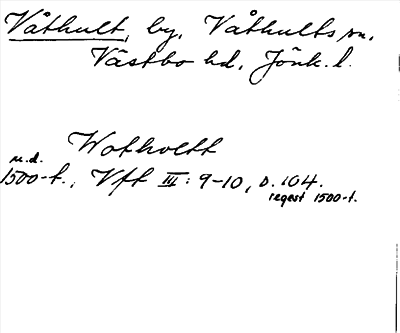 Våthult, by, Våthults sn,
Västbo hd, Jönk. l.
Wotholtt
u.d.
1500-t., Vft III: 9-10, s. 104.
regest 1500-t.